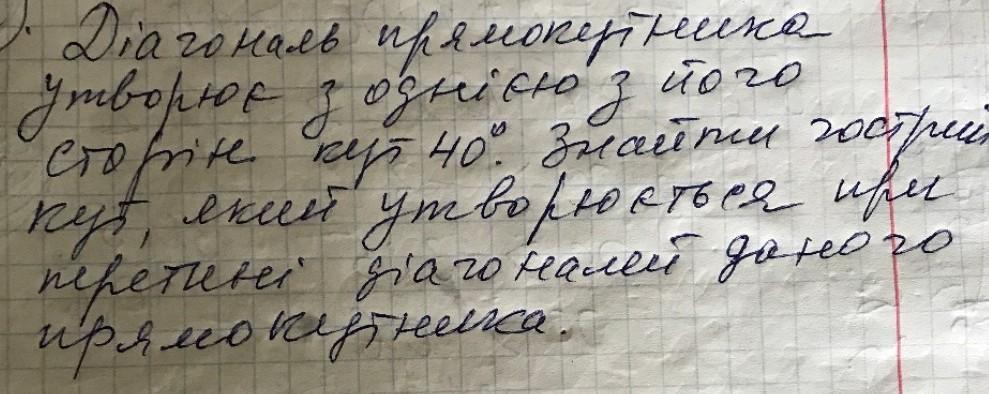 Діагональ прямокутника
утворює з однією з його
сторін кут 40°. Знайти гострий
кут, який утворюється при
перетині діагоналей даного
прямокутника.